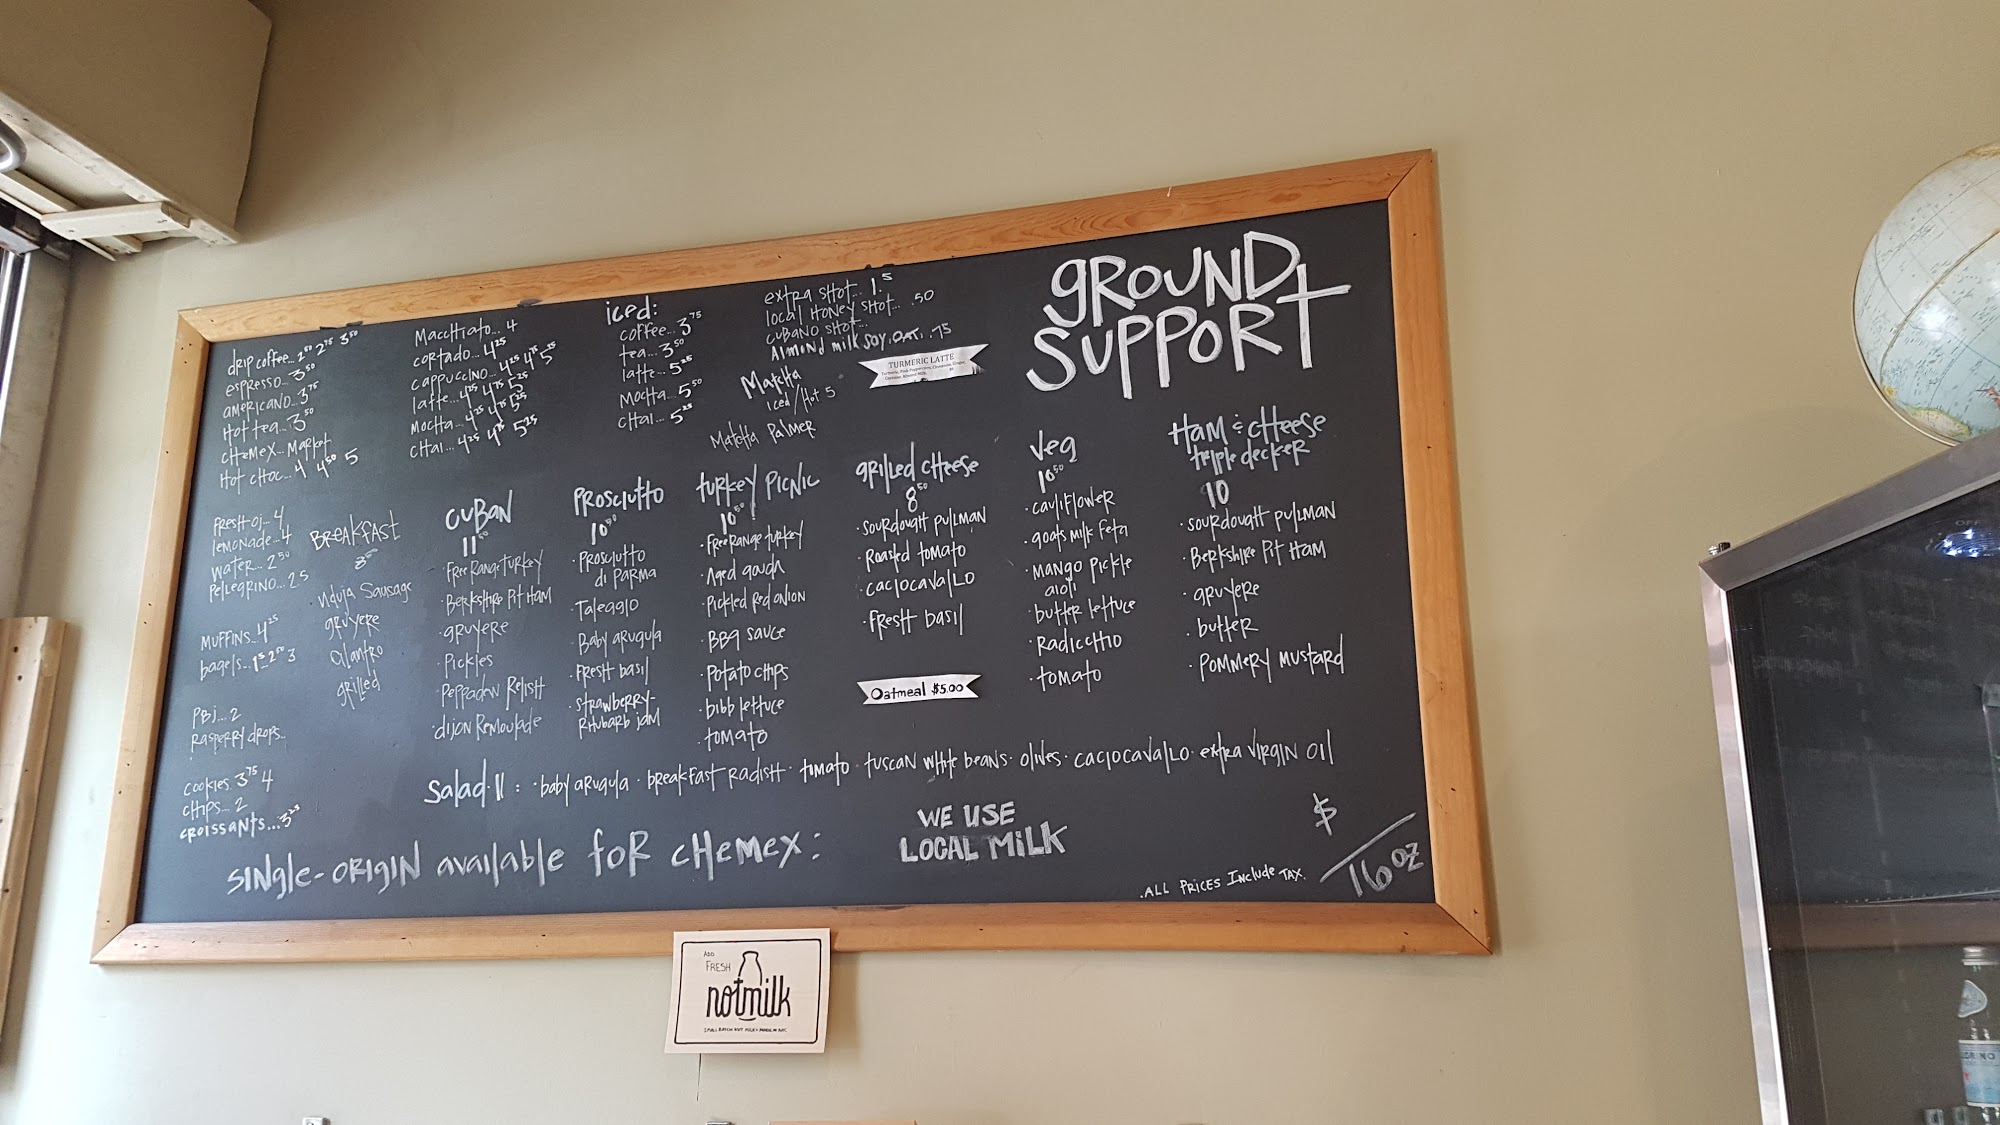 GROUND
SUPPORT
drip coffee... 2⁵⁰ 2⁷⁵ 3⁵⁰
espresso... 3⁵⁰
americano... 3⁷⁵
Hot tea... 3⁵⁰
CHemex... Market
Hot CHoc... 4 4⁵⁰ 5
Macchiato... 4
cortado... 4²⁵
cappuccino... 4²⁵ 4⁷⁵ 5²⁵
latte... 4²⁵ 4⁷⁵ 5²⁵
Mocha... 4²⁵ 4⁷⁵ 5²⁵
CHai... 4²⁵ 4⁷⁵ 5²⁵
iced:
coffee... 3⁷⁵
tea... 3⁵⁰
latte... 5²⁵
Mocha... 5⁵⁰
CHai... 5²⁵
extra shot... 1.⁵
local Honey shot... .50
cubano shot...
Almond milk soy. oat. .75
TURMERIC LATTE
Matcha
iced/Hot 5
Matcha Palmer
fresh oj... 4
lemonade... 4
water... 2⁵⁰
Pellegrino... 2.5
Muffins... 4²⁵
bagels... 1⁷⁵ 2⁵⁰ 3
PBj... 2
Rasperry drops...
cookies 3⁷⁵ 4
CHips... 2
croissants... 3²⁵
Breakfast
8⁵⁰
Nduja Sausage
gruyere
Cilantro
grilled
Cuban
11⁵⁰
· Free Range turkey
· Berkshire Pit Ham
· gruyere
· Pickles
· Peppadew Relish
· dijon Remoulade
Prosciutto
10⁵⁰
· Prosciutto
di Parma
· Taleggio
· Baby arugula
· Fresh basil
· Strawberry-
Rhubarb jam
Turkey Picnic
10⁵⁰
· Free Range turkey
· Aged gouda
· Pickled Red onion
· BBq sauce
· Potato chips
· bibb lettuce
· tomato
grilled cheese
8⁵⁰
· Sourdough pullman
· Roasted tomato
· caciocavallo
· Fresh basil
Oatmeal $5.00
Veg
10⁵⁰
· cauliflower
· goats milk feta
· mango pickle
aioli
· butter lettuce
· Radicchio
· tomato
Ham & CHeese
triple decker
10
· Sourdough pullman
· Berkshire Pit Ham
· gruyere
· butter
· Pommery mustard
Salad 11 : · baby arugula · breakfast radish · tomato · tuscan white beans · olives · caciocavallo · extra virgin oil
single-origin available for CHemex:
WE USE
LOCAL MILK
$
/16 oz
. ALL PRICES Include TAX.
ADD
FRESH
notmilk
SMALL BATCH NUT MILKS MADE IN NYC